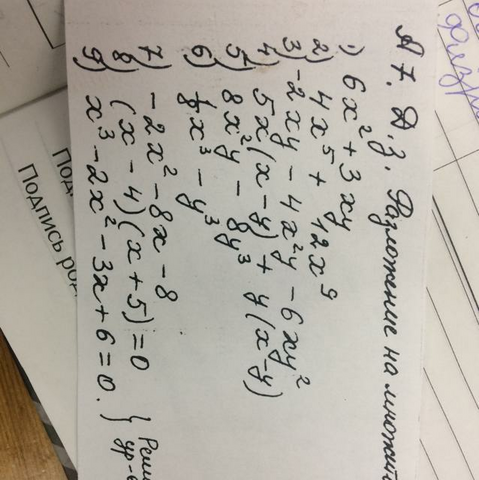 А 7. Д.З. Разложение на множит
1) 6x² + 3xy
2) 4x⁵ + 12x⁹
3) -2xy - 4x²y - 6xy²
4) 5x(x-y) + y(x-y)
5) 8x²y - 8y³
6) x³ - y³
7) -2x² - 8x - 8
8) (x-4)(x+5)=0
9) x³ - 2x² - 3x + 6 = 0. }
Реши
ур-
Подпись род
По